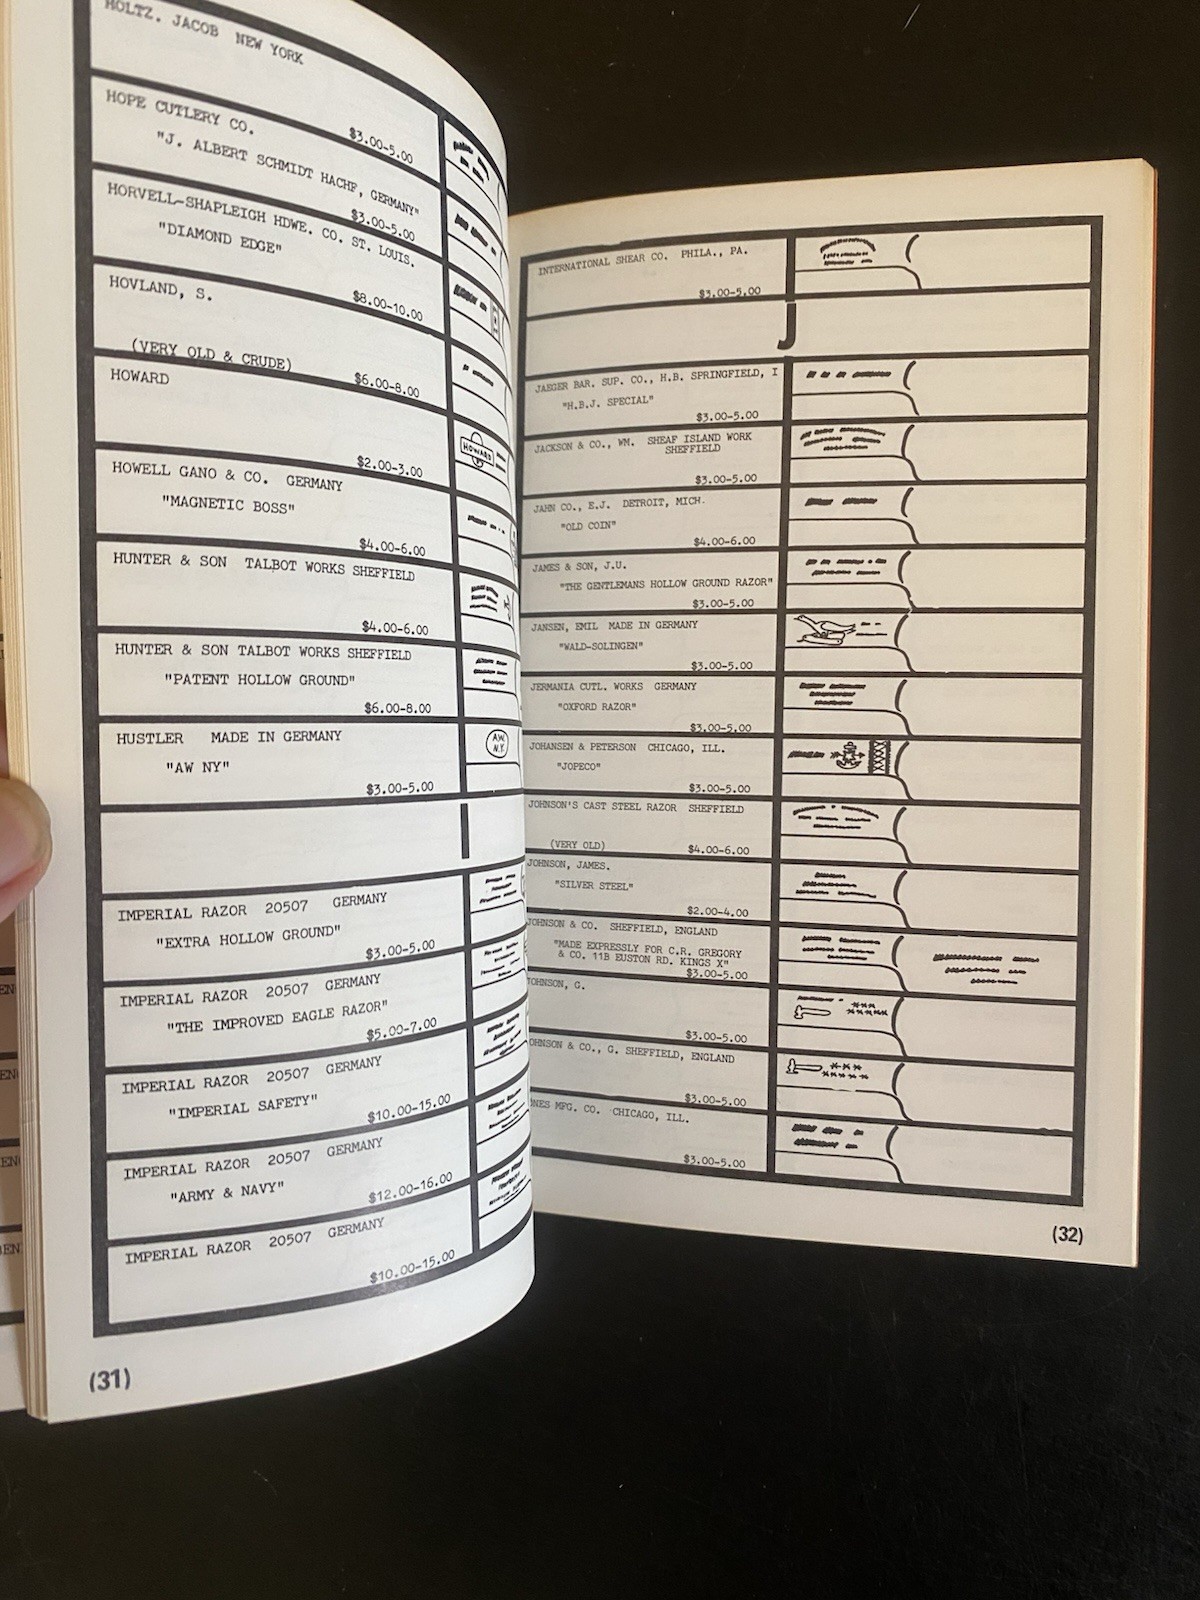 HOLTZ. JACOB NEW YORK
$3.00-5.00
HOPE CUTLERY CO.
"J. ALBERT SCHMIDT HACHF, GERMANY"
$3.00-5.00
HORVELL-SHAPLEIGH HDWE. CO. ST. LOUIS.
"DIAMOND EDGE"
$8.00-10.00
HOVLAND, S.
(VERY OLD & CRUDE)
$6.00-8.00
HOWARD
$2.00-3.00
HOWARD
HOWELL GANO & CO. GERMANY
"MAGNETIC BOSS"
$4.00-6.00
HUNTER & SON TALBOT WORKS SHEFFIELD
$4.00-6.00
HUNTER & SON TALBOT WORKS SHEFFIELD
"PATENT HOLLOW GROUND"
$6.00-8.00
HUSTLER MADE IN GERMANY
"AW NY"
$3.00-5.00
AW.
N.Y.
I
IMPERIAL RAZOR 20507 GERMANY
"EXTRA HOLLOW GROUND"
$3.00-5.00
IMPERIAL RAZOR 20507 GERMANY
"THE IMPROVED EAGLE RAZOR"
$5.00-7.00
IMPERIAL RAZOR 20507 GERMANY
"IMPERIAL SAFETY"
$10.00-15.00
IMPERIAL RAZOR 20507 GERMANY
"ARMY & NAVY"
$12.00-16.00
IMPERIAL RAZOR 20507 GERMANY
$10.00-15.00
(31)
INTERNATIONAL SHEAR CO. PHILA., PA.
$3.00-5.00
J
JAEGER BAR. SUP. CO., H.B. SPRINGFIELD, I
"H.B.J. SPECIAL"
$3.00-5.00
JACKSON & CO., WM. SHEAF ISLAND WORK
SHEFFIELD
$3.00-5.00
JAHN CO., E.J. DETROIT, MICH.
"OLD COIN"
$4.00-6.00
JAMES & SON, J.U.
"THE GENTLEMANS HOLLOW GROUND RAZOR"
$3.00-5.00
JANSEN, EMIL MADE IN GERMANY
"WALD-SOLINGEN"
$3.00-5.00
JERMANIA CUTL. WORKS GERMANY
"OXFORD RAZOR"
$3.00-5.00
JOHANSEN & PETERSON CHICAGO, ILL.
"JOPECO"
$3.00-5.00
JOHNSON'S CAST STEEL RAZOR SHEFFIELD
(VERY OLD)
$4.00-6.00
JOHNSON, JAMES.
"SILVER STEEL"
$2.00-4.00
JOHNSON & CO. SHEFFIELD, ENGLAND
"MADE EXPRESSLY FOR C.R. GREGORY
& CO. 11B EUSTON RD. KINGS X"
$3.00-5.00
JOHNSON, G.
$3.00-5.00
OHNSON & CO., G. SHEFFIELD, ENGLAND
$3.00-5.00
ONES MFG. CO. CHICAGO, ILL.
$3.00-5.00
(32)